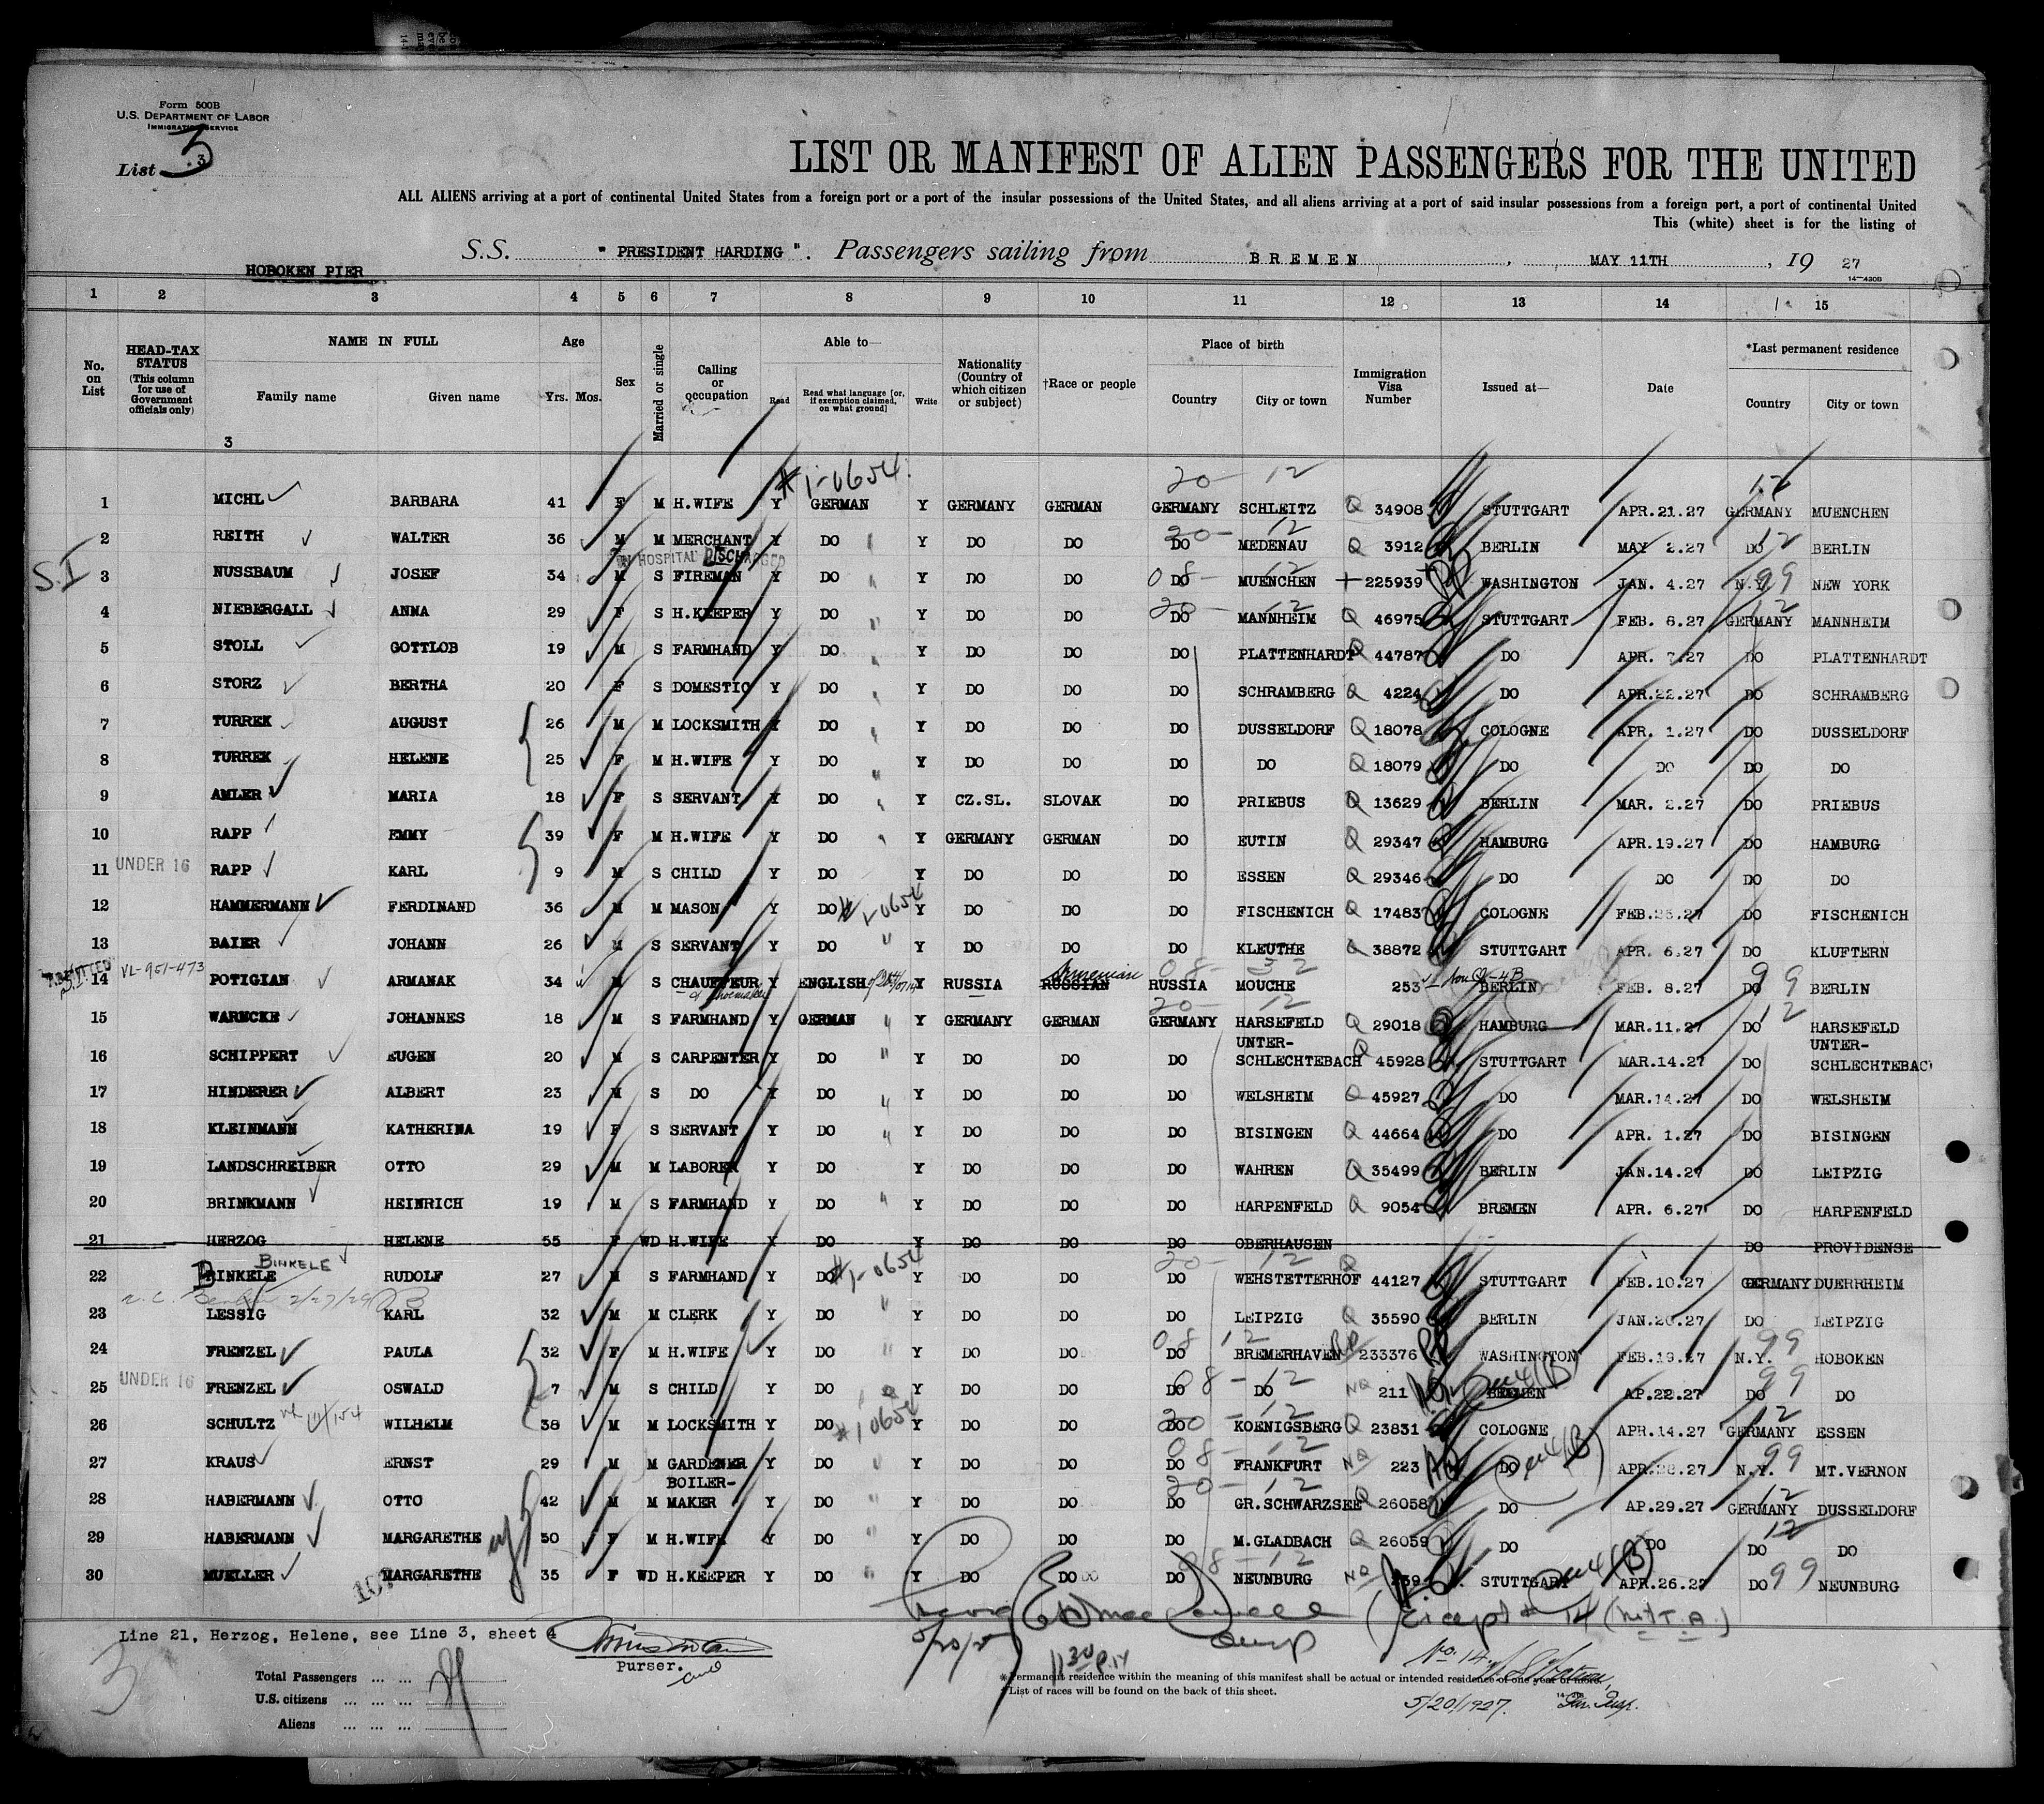 Form 500B
U.S. DEPARTMENT OF LABOR
IMMIGRATION SERVICE
List 3 3
LIST OR MANIFEST OF ALIEN PASSENGERS FOR THE UNITED
ALL ALIENS arriving at a port of continental United States from a foreign port or a port of the insular possessions of the United States, and all aliens arriving at a port of said insular possessions from a foreign port, a port of continental United
This (white) sheet is for the listing of
S.S. "PRESIDENT HARDING". Passengers sailing from BREMEN, MAY 11TH, 19 27
HOBOKEN PIER
14-430B
1 2 3 4 5 6 7 8 9 10 11 12 13 14 15
No. on List
HEAD-TAX STATUS (This column for use of Government officials only)
NAME IN FULL Family name Given name
Age Yrs. Mos.
Sex
Married or single
Calling or occupation
Able to— Read Read what language [or, if exemption claimed, on what ground] Write
Nationality (Country of which citizen or subject)
†Race or people
Place of birth Country City or town
Immigration Visa Number
Issued at—
Date
*Last permanent residence Country City or town
3
#1-0654 20- 12 12
1 MICHL BARBARA 41 F M H.WIFE Y GERMAN Y GERMANY GERMAN GERMANY SCHLEITZ Q 34908 STUTTGART APR.21.27 GERMANY MUENCHEN
20- 12 12
2 REITH WALTER 36 M M MERCHANT Y DO Y DO DO DO MEDENAU Q 3912 BERLIN MAY 2.27 DO BERLIN
IN HOSPITAL DISCHARGED
S.I 3 NUSSBAUM JOSEF 34 M S FIREMAN Y DO Y DO DO 08- DO 12 MUENCHEN +225939 WASHINGTON JAN. 4.27 N.Y. 99 NEW YORK
4 NIEBERGALL ANNA 29 F S H.KEEPER Y DO Y DO DO 20- DO 12 MANNHEIM Q 46975 STUTTGART FEB. 8.27 12 GERMANY MANNHEIM
5 STOLL GOTTLOB 19 M S FARMHAND Y DO Y DO DO DO PLATTENHARDT Q 44787 DO APR. 7.27 DO PLATTENHARDT
6 STORZ BERTHA 20 F S DOMESTIC Y DO Y DO DO DO SCHRAMBERG Q 4224 DO APR.22.27 DO SCHRAMBERG
7 TURREK AUGUST 26 M M LOCKSMITH Y DO Y DO DO DO DUSSELDORF Q 18078 COLOGNE APR. 1.27 DO DUSSELDORF
8 TURREK HELENE 25 F M H.WIFE Y DO Y DO DO DO DO Q 18079 DO DO DO DO
9 AMLER MARIA 18 F S SERVANT Y DO Y CZ.SL. SLOVAK DO PRIEBUS Q 13629 BERLIN MAR. 2.27 DO PRIEBUS
10 RAPP EMMY 39 F M H.WIFE Y DO Y GERMANY GERMAN DO EUTIN Q 29347 HAMBURG APR.19.27 DO HAMBURG
11 UNDER 16 RAPP KARL 9 M S CHILD Y DO Y DO DO DO ESSEN Q 29346 DO DO DO DO
12 HAMMERMANN FERDINAND 36 M M MASON Y DO #1-0654 Y DO DO DO FISCHENICH Q 17483 COLOGNE FEB.25.27 DO FISCHENICH
13 BAIER JOHANN 26 M S SERVANT Y DO Y DO DO DO KLEUTHE Q 38872 STUTTGART APR. 6.27 DO KLUFTERN
ADMITTED S.I. 14 VL-951-473 POTIGIAN ARMANAK 34 M S CHAUFFEUR Y ENGLISH Y RUSSIA RUSSIAN Armenian 08- RUSSIA 32 MOUCHE 253 Non Q-4B BERLIN FEB. 8.27 DO 99 BERLIN
or Shoemaker
20- 12 12
15 WARNCKE JOHANNES 18 M S FARMHAND Y GERMAN Y GERMANY GERMAN GERMANY HARSEFELD Q 29018 HAMBURG MAR.11.27 DO HARSEFELD
UNTER- UNTER-
16 SCHIPPERT EUGEN 20 M S CARPENTER Y DO Y DO DO DO SCHLECHTEBACH Q 45928 STUTTGART MAR.14.27 DO SCHLECHTEBAC
17 HINDERER ALBERT 23 M S DO Y DO Y DO DO DO WELSHEIM Q 45927 DO MAR.14.27 DO WELSHEIM
18 KLEINMANN KATHERINA 19 F S SERVANT Y DO Y DO DO DO BISINGEN Q 44664 DO APR. 1.27 DO BISINGEN
19 LANDSCHREIBER OTTO 29 M M LABORER Y DO Y DO DO DO WAHREN Q 35499 BERLIN JAN.14.27 DO LEIPZIG
20 BRINKMANN HEINRICH 19 M S FARMHAND Y DO Y DO DO DO HARPENFELD Q 9054 BREMEN APR. 6.27 DO HARPENFELD
21 HERZOG HELENE 55 F WD H.WIFE Y DO Y DO DO DO OBERHAUSEN DO PROVIDENSE
BINKELE #1-0654 20- 12 Q
22 BINKELE RUDOLF 27 M S FARMHAND Y DO Y DO DO DO WEHSTETTERHOF 44127 STUTTGART FEB.10.27 GERMANY DUERRHEIM
23 LESSIG KARL 32 M M CLERK Y DO Y DO DO DO LEIPZIG Q 35590 BERLIN JAN.20.27 DO LEIPZIG
24 FRENZEL PAULA 32 F M H.WIFE Y DO Y DO DO 08 DO 12 BREMERHAVEN RP 233376 RP WASHINGTON FEB.19.27 N.Y. 99 HOBOKEN
25 UNDER 16 FRENZEL OSWALD 7 M S CHILD Y DO Y DO DO DO 08- DO 12 NQ 211 BREMEN AP.22.27 DO 99 DO
26 SCHULTZ WILHELM 38 M M LOCKSMITH Y DO #1 0654 Y DO DO 20- DO 12 KOENIGSBERG Q 23831 COLOGNE APR.14.27 12 GERMANY ESSEN
27 KRAUS ERNST 29 M M GARDENER Y DO Y DO DO 08- DO 12 FRANKFURT NQ 223 DO APR.28.27 N.Y. 99 MT.VERNON
BOILER- 20- 12
28 HABERMANN OTTO 42 M M MAKER Y DO Y DO DO DO GR.SCHWARZSEE Q 26058 DO AP.29.27 12 GERMANY DUSSELDORF
29 HABERMANN MARGARETHE 50 F M H.WIFE Y DO Y DO DO DO M.GLADBACH Q 26059 DO DO 12 DO DO
30 MUELLER MARGARETHE 35 F WD H.KEEPER Y DO Y DO DO 08- DO 12 NEUNBURG NQ STUTTGART APR.26.27 DO 99 NEUNBURG
Except # 14 (not T.A.)
Line 21, Herzog, Helene, see Line 3, sheet 4
Purser.
5/20/27 1130 P.M
Insp
No. 14.
3
Total Passengers ... ...
U.S. citizens ... ... ...
Aliens ... ... ...
*Permanent residence within the meaning of this manifest shall be actual or intended residence of one year or more.
†List of races will be found on the back of this sheet.
5/20/1927.